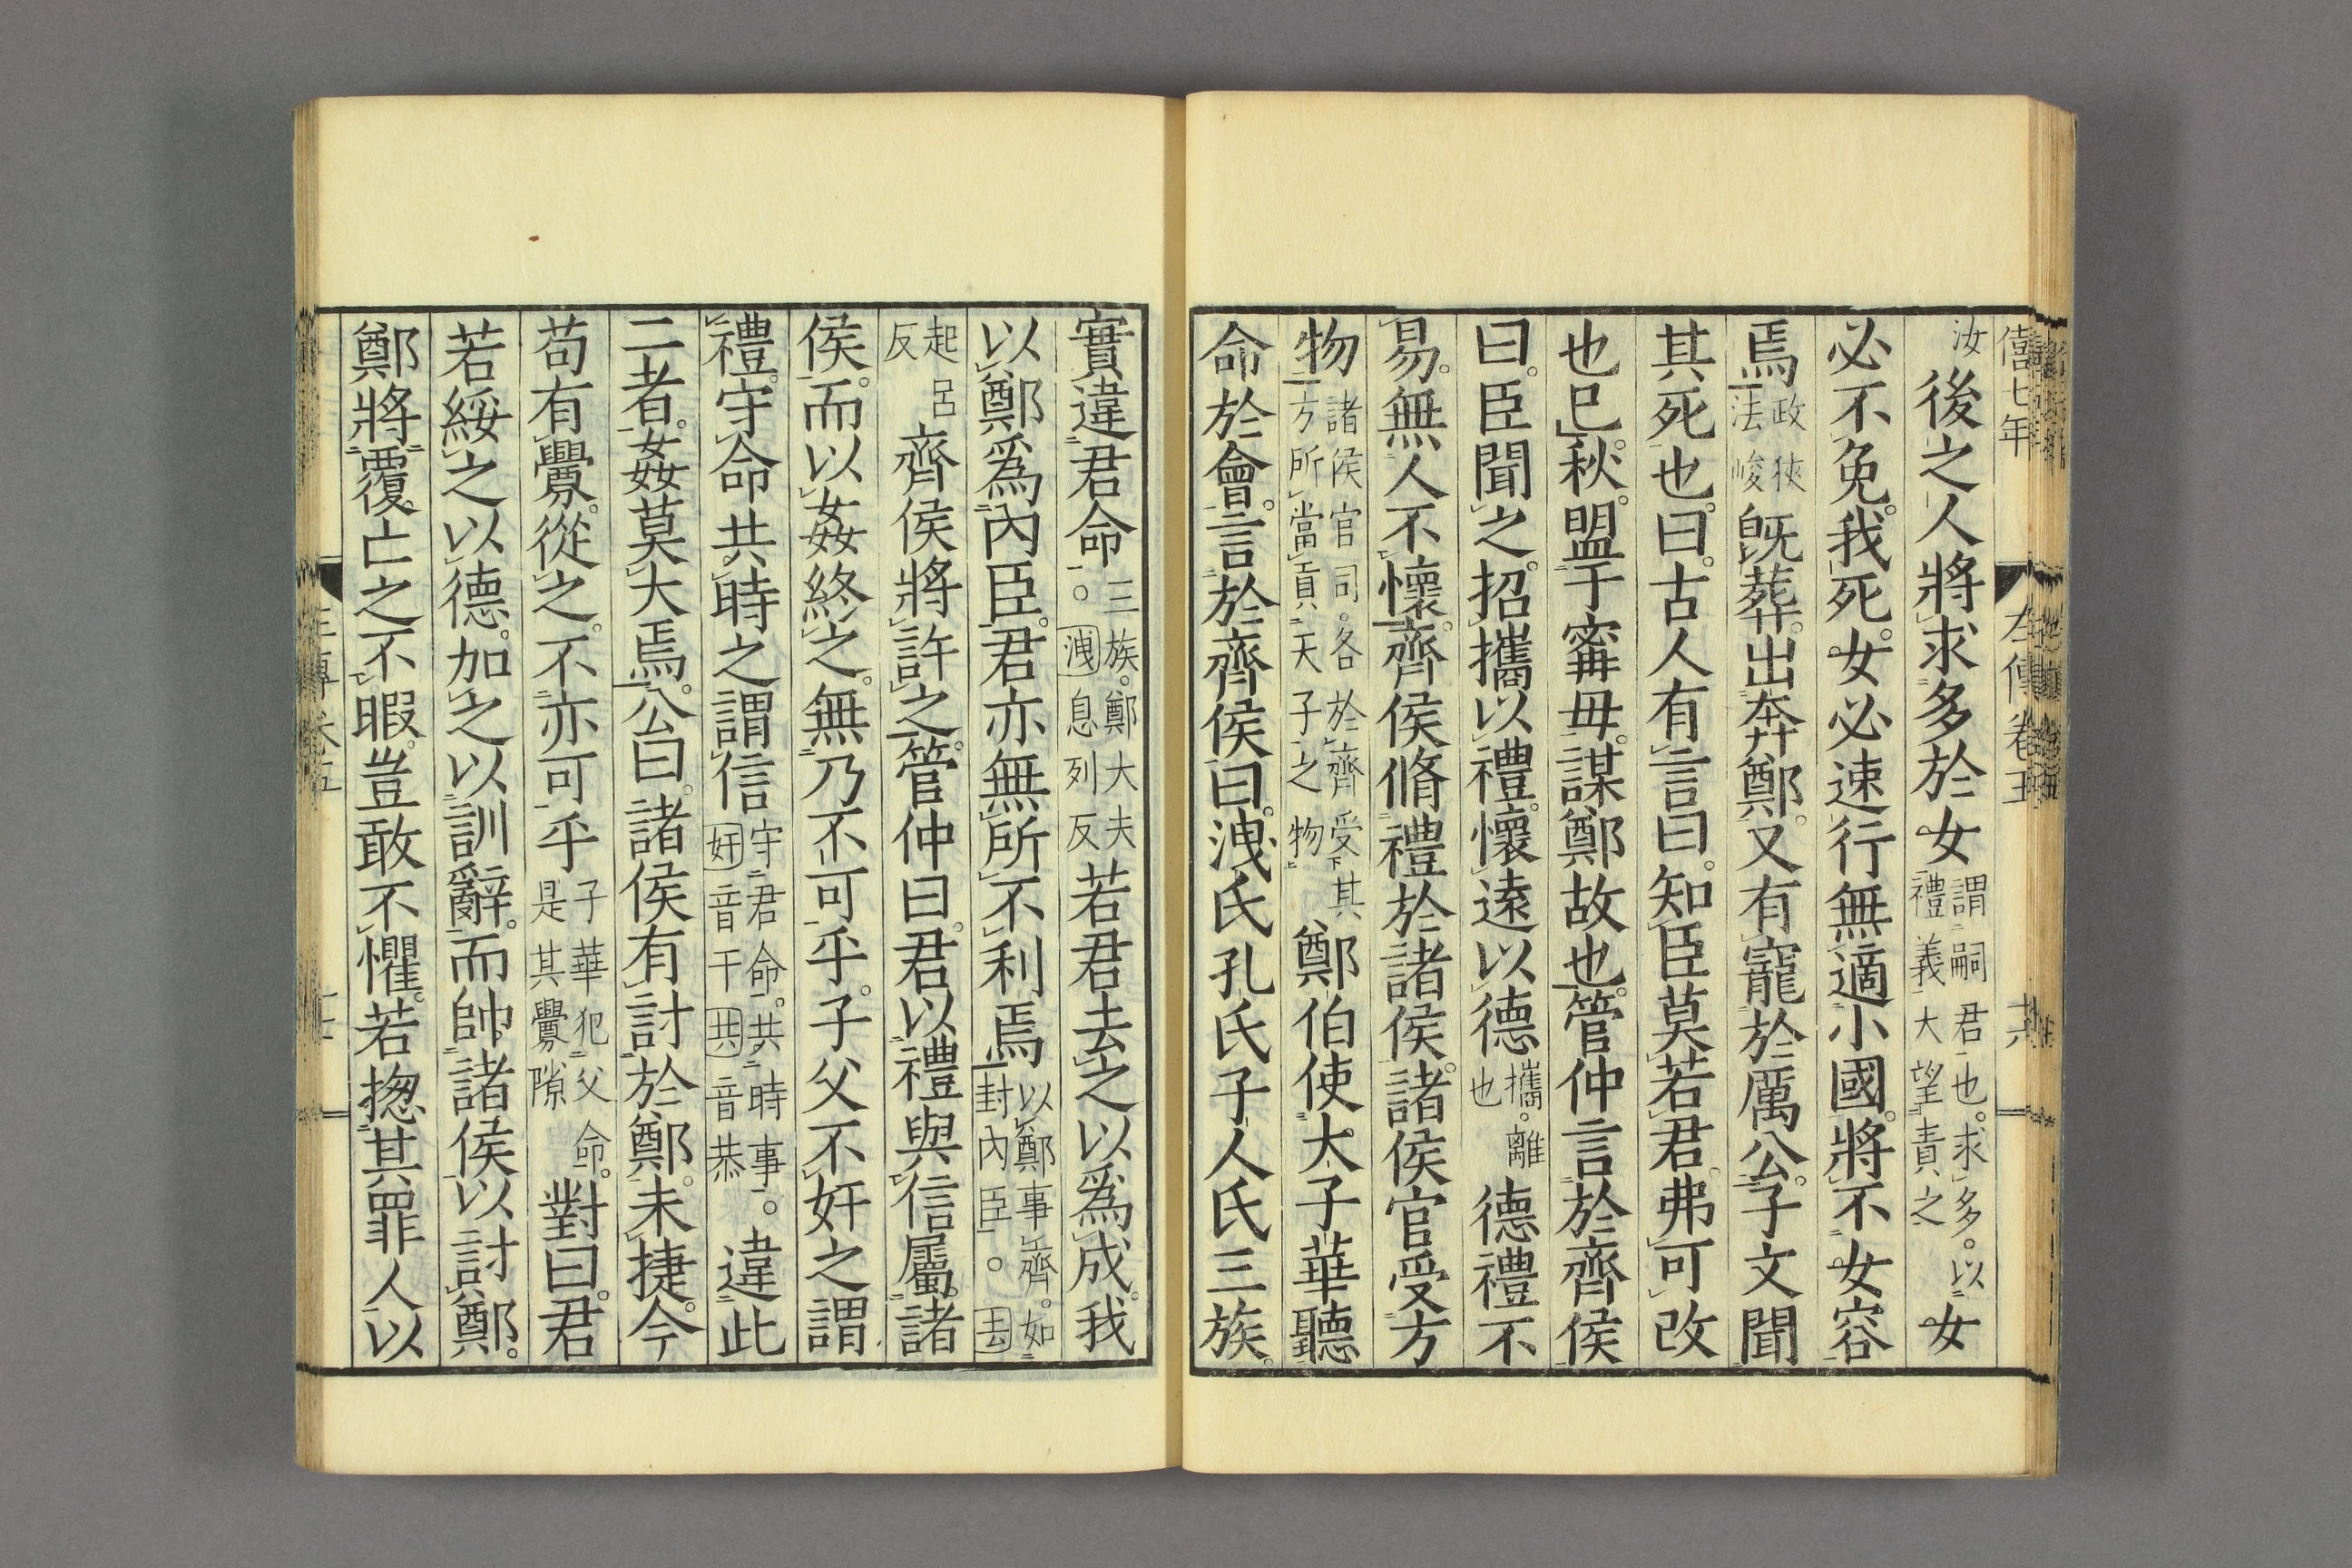 僖七年
左傳卷五
十六
汝後之人將求多於女謂嗣君也。求多。以禮義大望責之女
必不免。我死。女必速行無適小國。將不女容
焉政狹法峻既葬。出奔鄭。又有寵於厲公。子文聞
其死也。曰。古人有言曰。知臣莫若君。弗可改
也已。秋。盟于甯毋。謀鄭故也。管仲言於齊侯
曰。臣聞之。招攜以禮。懷遠以德攜。離也德禮不
易。無人不懷。齊侯脩禮於諸侯。諸侯官受方
物諸侯官司。各於齊受其方所當貢天子之物鄭伯使大子華聽
命於會。言於齊侯曰。洩氏孔氏子人氏三族。
實違君命。三族。鄭大夫洩息列反若君去之以爲成。我
以鄭爲內臣。君亦無所不利焉以鄭事齊。如封內臣。去
起呂反齊侯將許之。管仲曰。君以禮與信屬。諸
侯。而以姦終之。無乃不可乎。子父不奸之謂
禮。守命共時之謂信守君命。共時事。奸音干共音恭違此
二者。姦莫大焉。公曰。諸侯有討於鄭。未捷。今
苟有釁。從之。不亦可乎子華犯父命。是其釁隙對曰。君
若綏之以德。加之以訓辭。而帥諸侯以討鄭。
鄭將覆。亡之不暇。豈敢不懼。若揔其罪人以